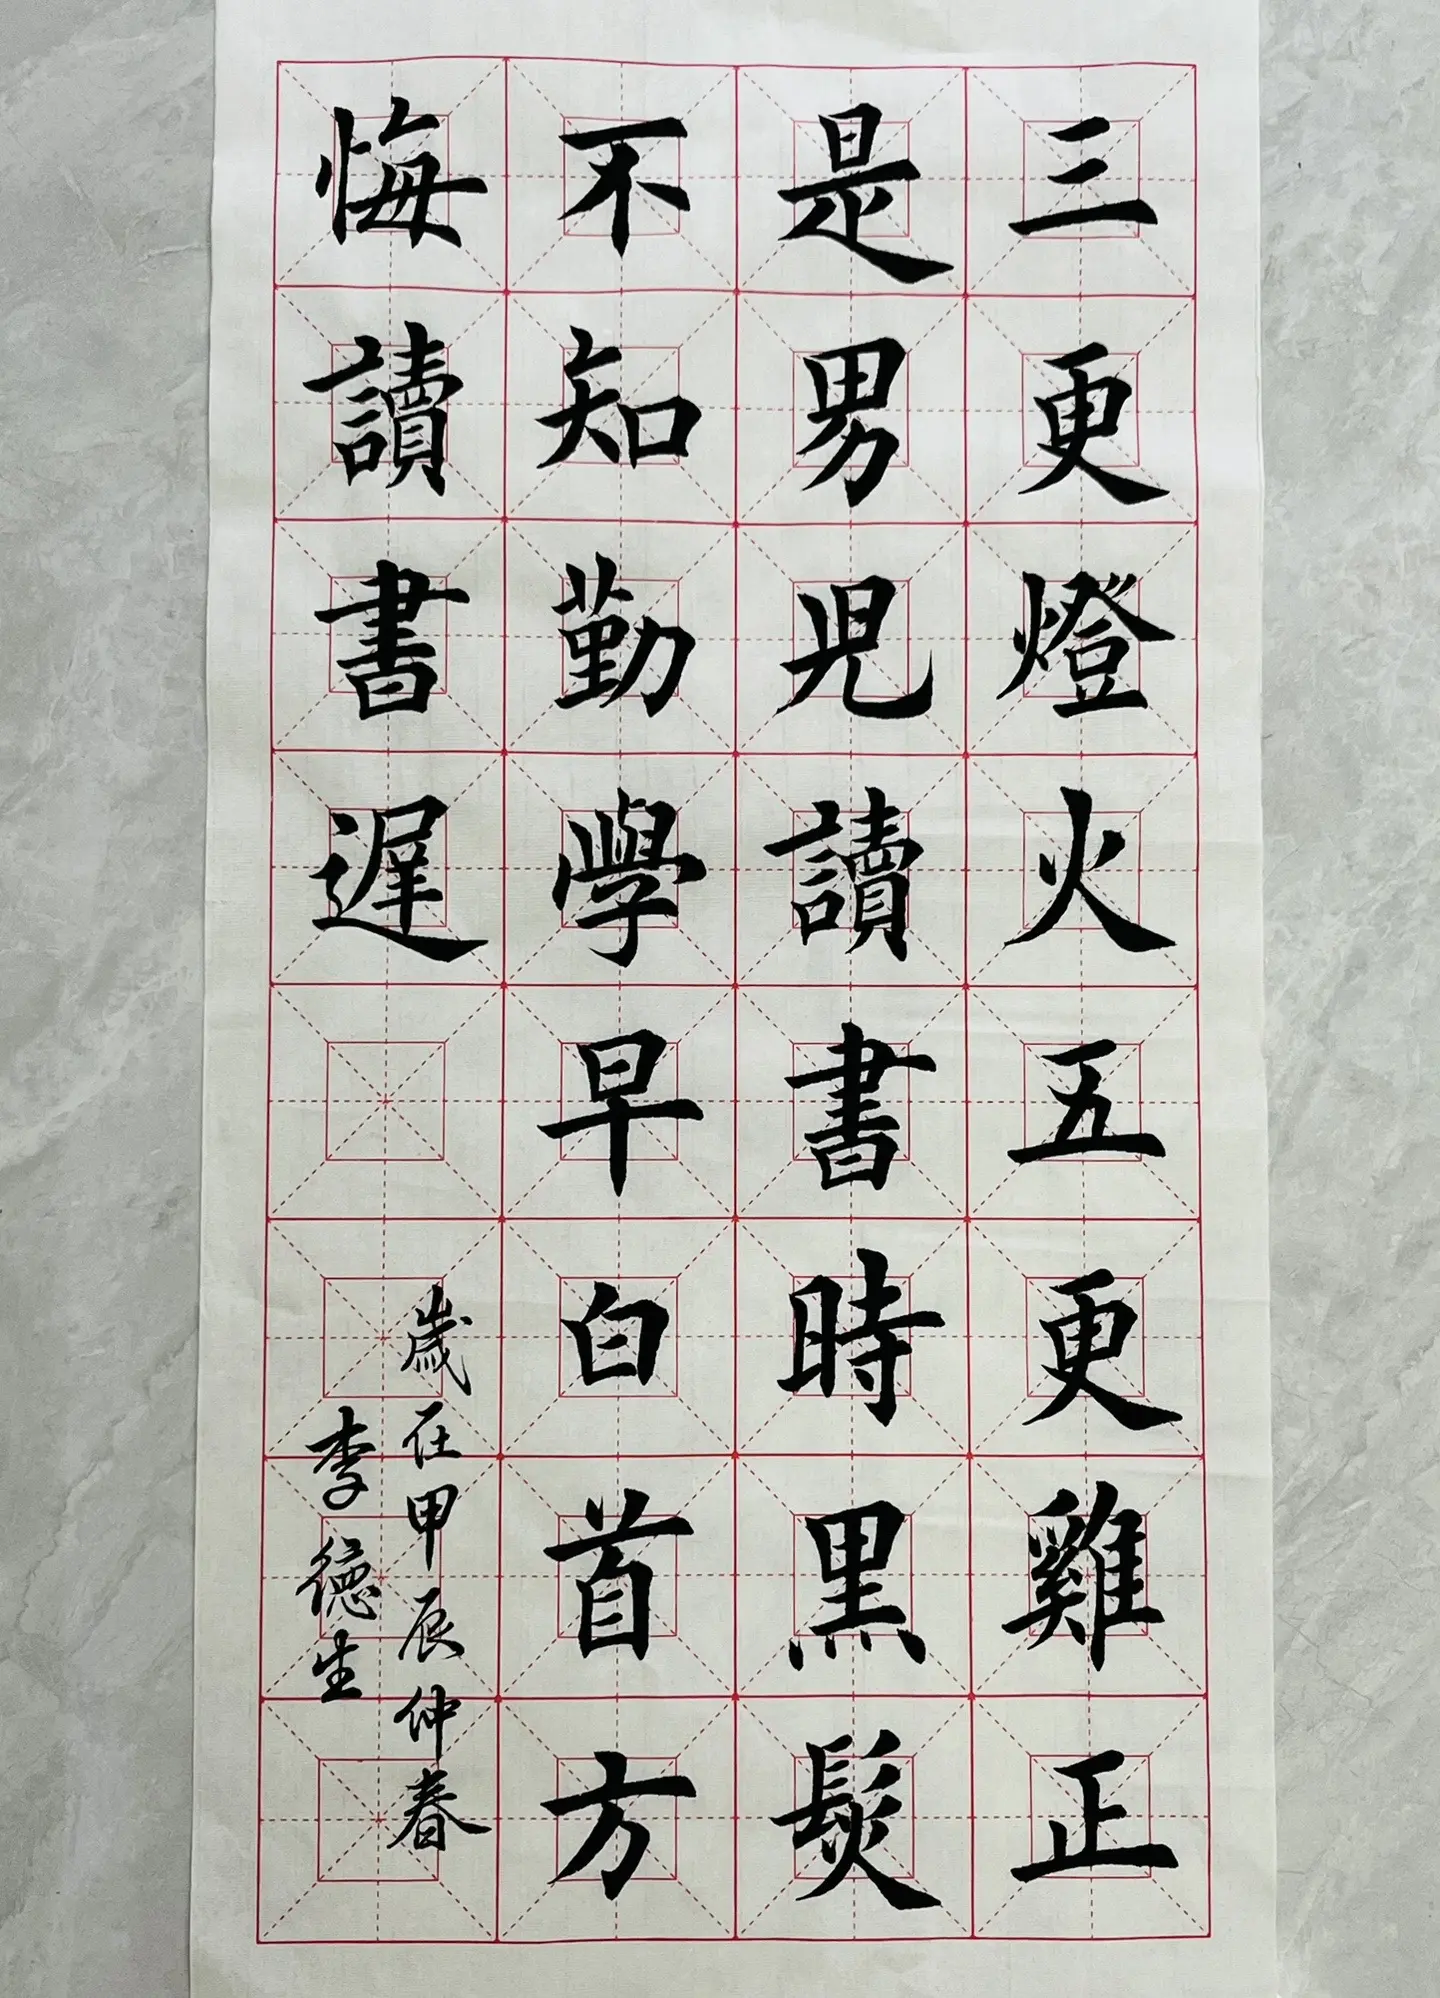 三更燈火五更雞正
是男兒讀書時黑髮
不知勤學早白首方
悔讀書遲
歲在甲辰仲春
李德生